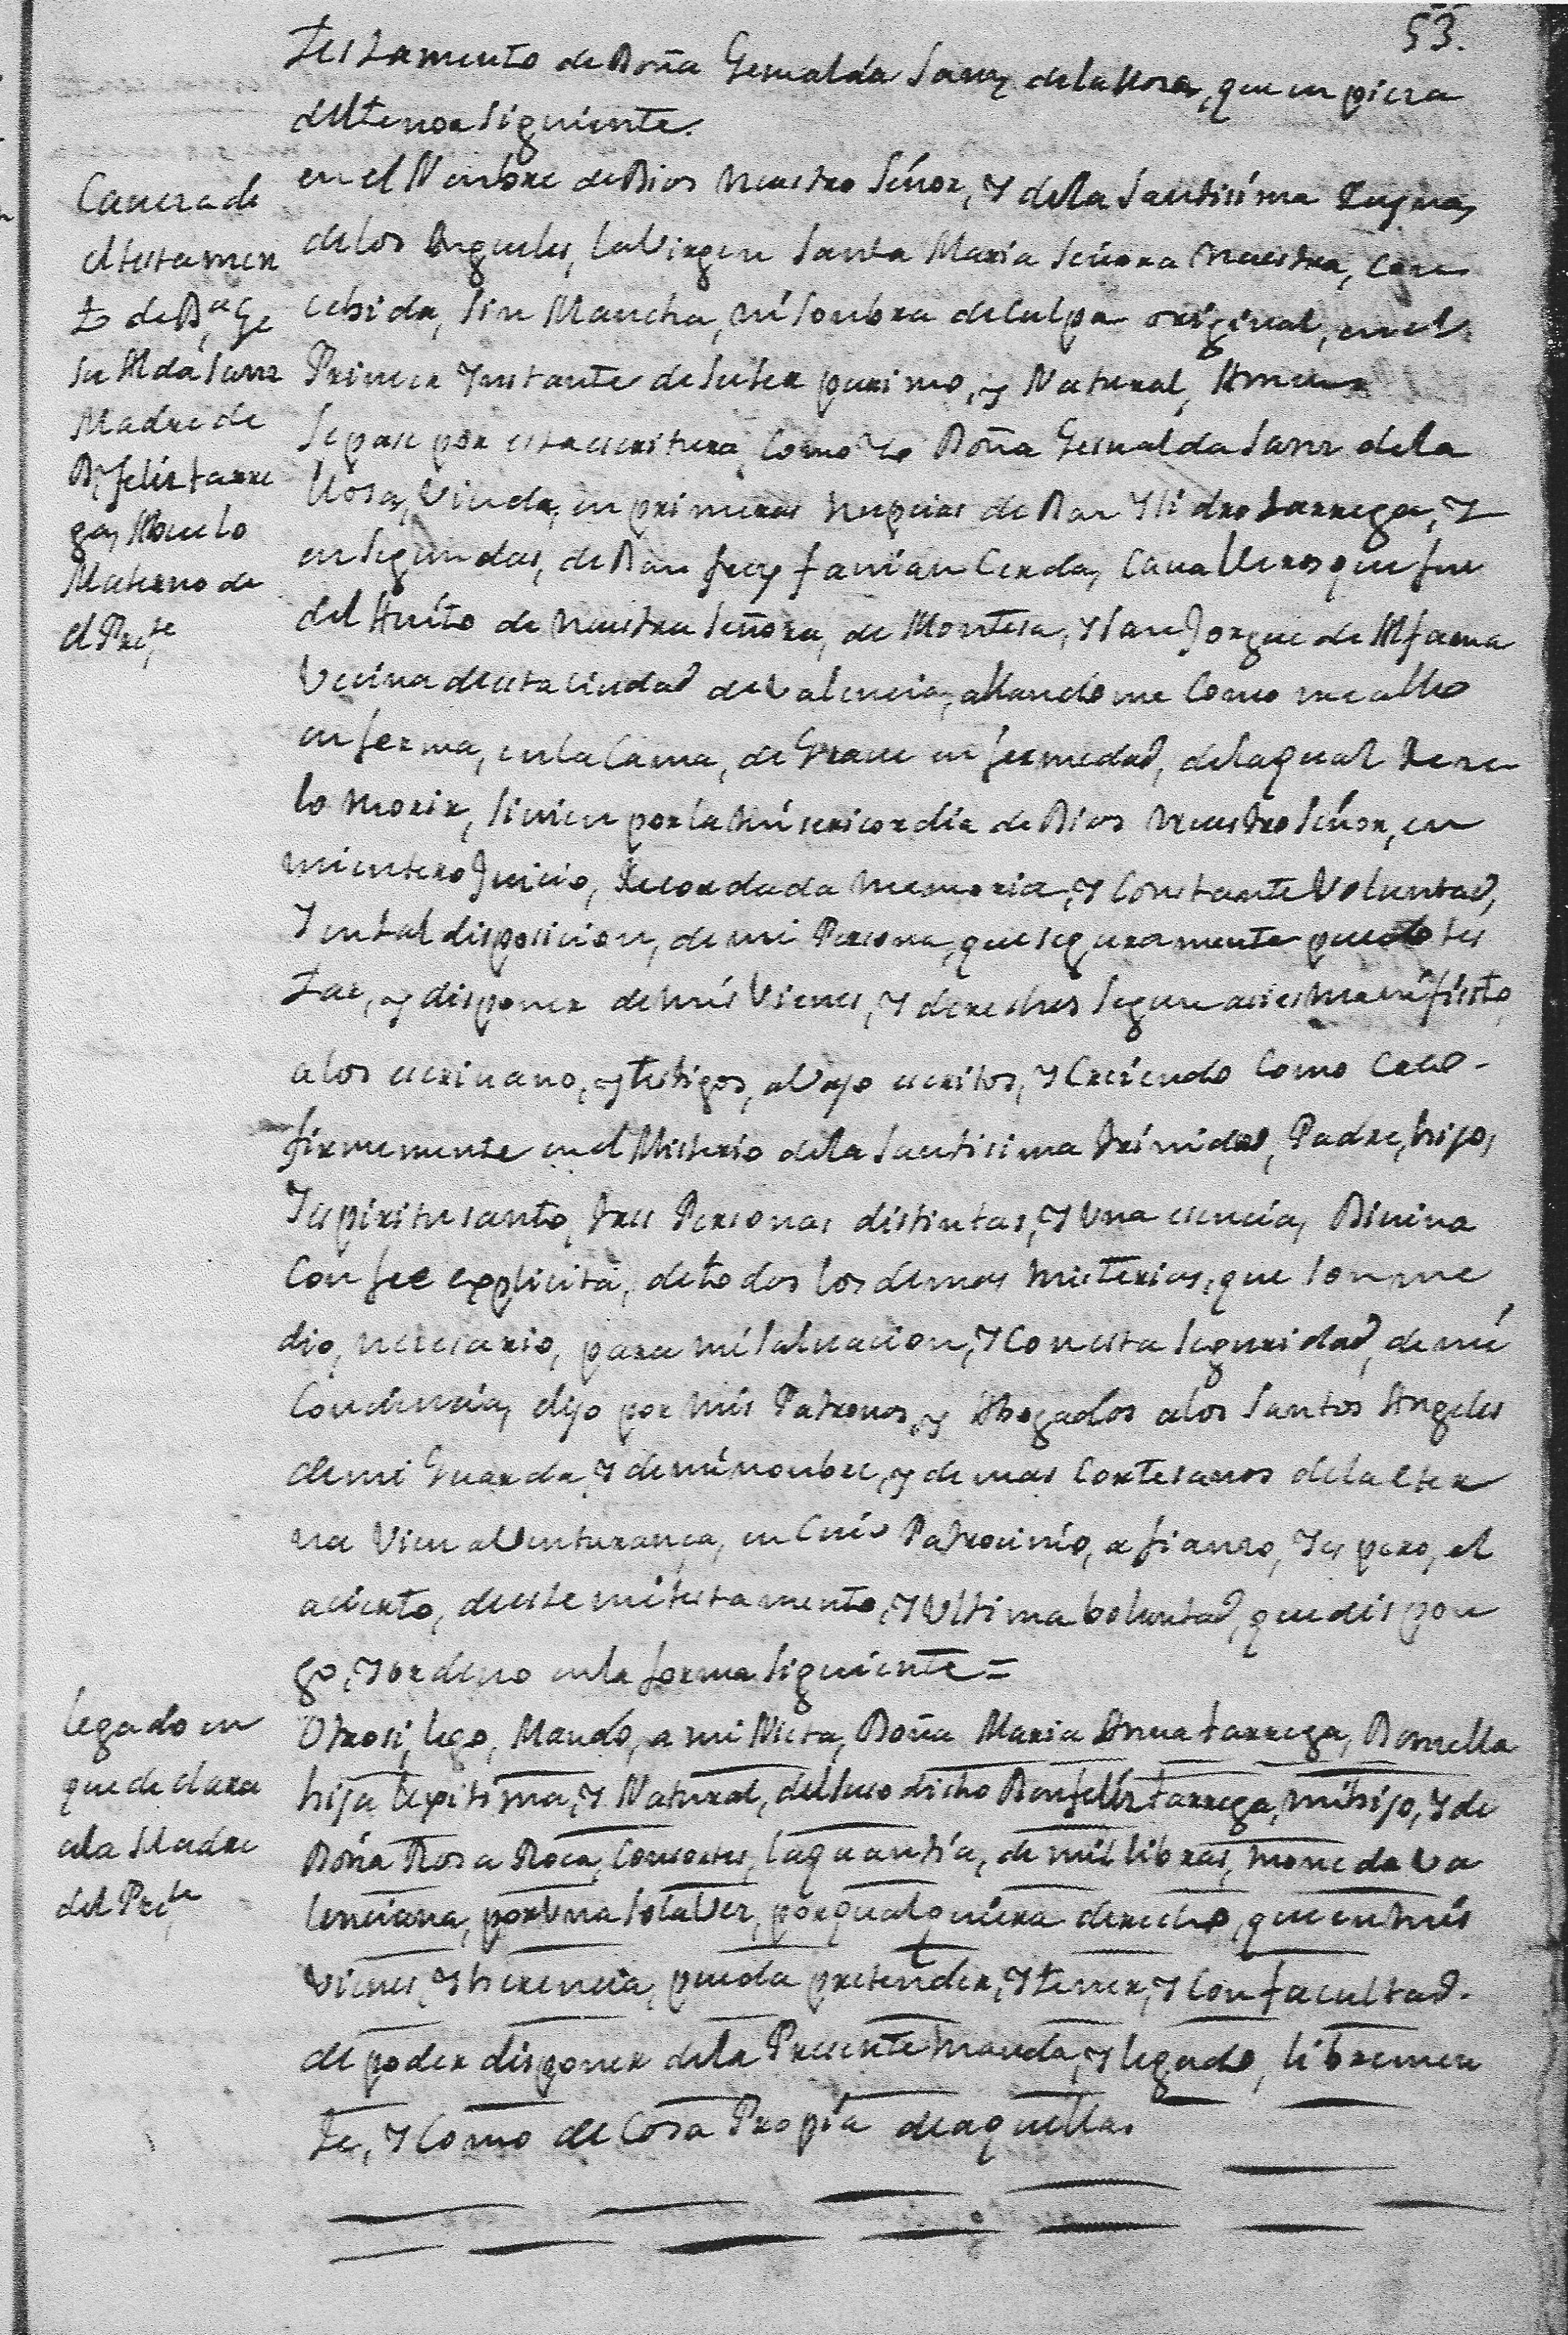 53.
testamento de Doña Gesualda Sanz de la llosa, que enpiera
del tenor siguiente.
en el Nonbre de Dios Nuestro Señor, y de la Santisíma Reyna,
de los Angueles, la Virgen Santa María Señora Nuestra, con
cebida, sin Mancha, ní sonbra de culpa original, en el
Primer Ynstante de su ser purimo, y Natural, Amen
Sepase por esta escritura, como Yo Doña Gesualda Sanz de la
llosa, Viuda, en primeras nupcias de Don Ysidro tarrega, Y
en segundas, de Don frey favian Cerda, Cavalleros que fue
del Auíto de Nuestra Señora, de Montesa, y San Jorgue de Alfama
Vecina de esta ciudad de Valencia, allandome como me allo
enferma, en la Cama, de Grave enfermedad, de la qual Rese
lo morir, si vien por la Mísericordía de Dios Nuestro Señor, en
mi entero Juicio, Recordada memoria, y Constante Voluntad,
Y en tal disposicion, de mi Persona, que seguramente puedo tes
tar, y disponer de mís Vienes, y derechos segun asi es manífiesto,
a los escrivano, y testigos, avajo escritos, y Creiendo Como creo -
firmemente en el Misterío de la Santisima trínidad, Padre, hijo,
Y espiritu santo, tres Personas distintas, y Una esencía, Divina
Con fee explicita, de todos los demas misterios, que son me
dio, necesario, para mí salvacion, y Con esta seguridad, de mí
Conciencia, elijo por mis Patronos, y Abogados a los Santos Angeles
de mi Guarda, y de mí nonbre, y de mas Cortesanos de la eter
na Vien aventurança, en Cuío Patrocinío, afianso, y espero, el
acierto, de este mi testamento, y Ultima boluntad, que dispon
go, y ordeno en la forma siguiente =
Otrosi, lego, Mando, a mi Nieta, Doña Maria Anna tarrega, Donsella
hija lexitima, y Natural, del suso dicho Don felíz tarrega, mí hijo, y de
Doña Rosa Roca, Consortes, la quantía, de mil libras, moneda Va
lenciana, por Una sola Vez, por qualquiera derecho, que en mís
Vienes, y herencia, pueda pretender, y tener, y Con facultad.
de poder disponer de la Presente manda, y legado, libremen
te, y Como de Cosa Propía de aquella.
Cavera de
el testamen
to de Dª. Ge
sualda Sanz
Madre de
D. felis tarre
ga, Abuelo
Materno de
el Prete
legado en
que declara
a la Madre
del Prete